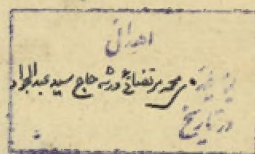 اهدائی
محمد مرتضائی ورثه حاج سید عبدالجواد
در تاریخ